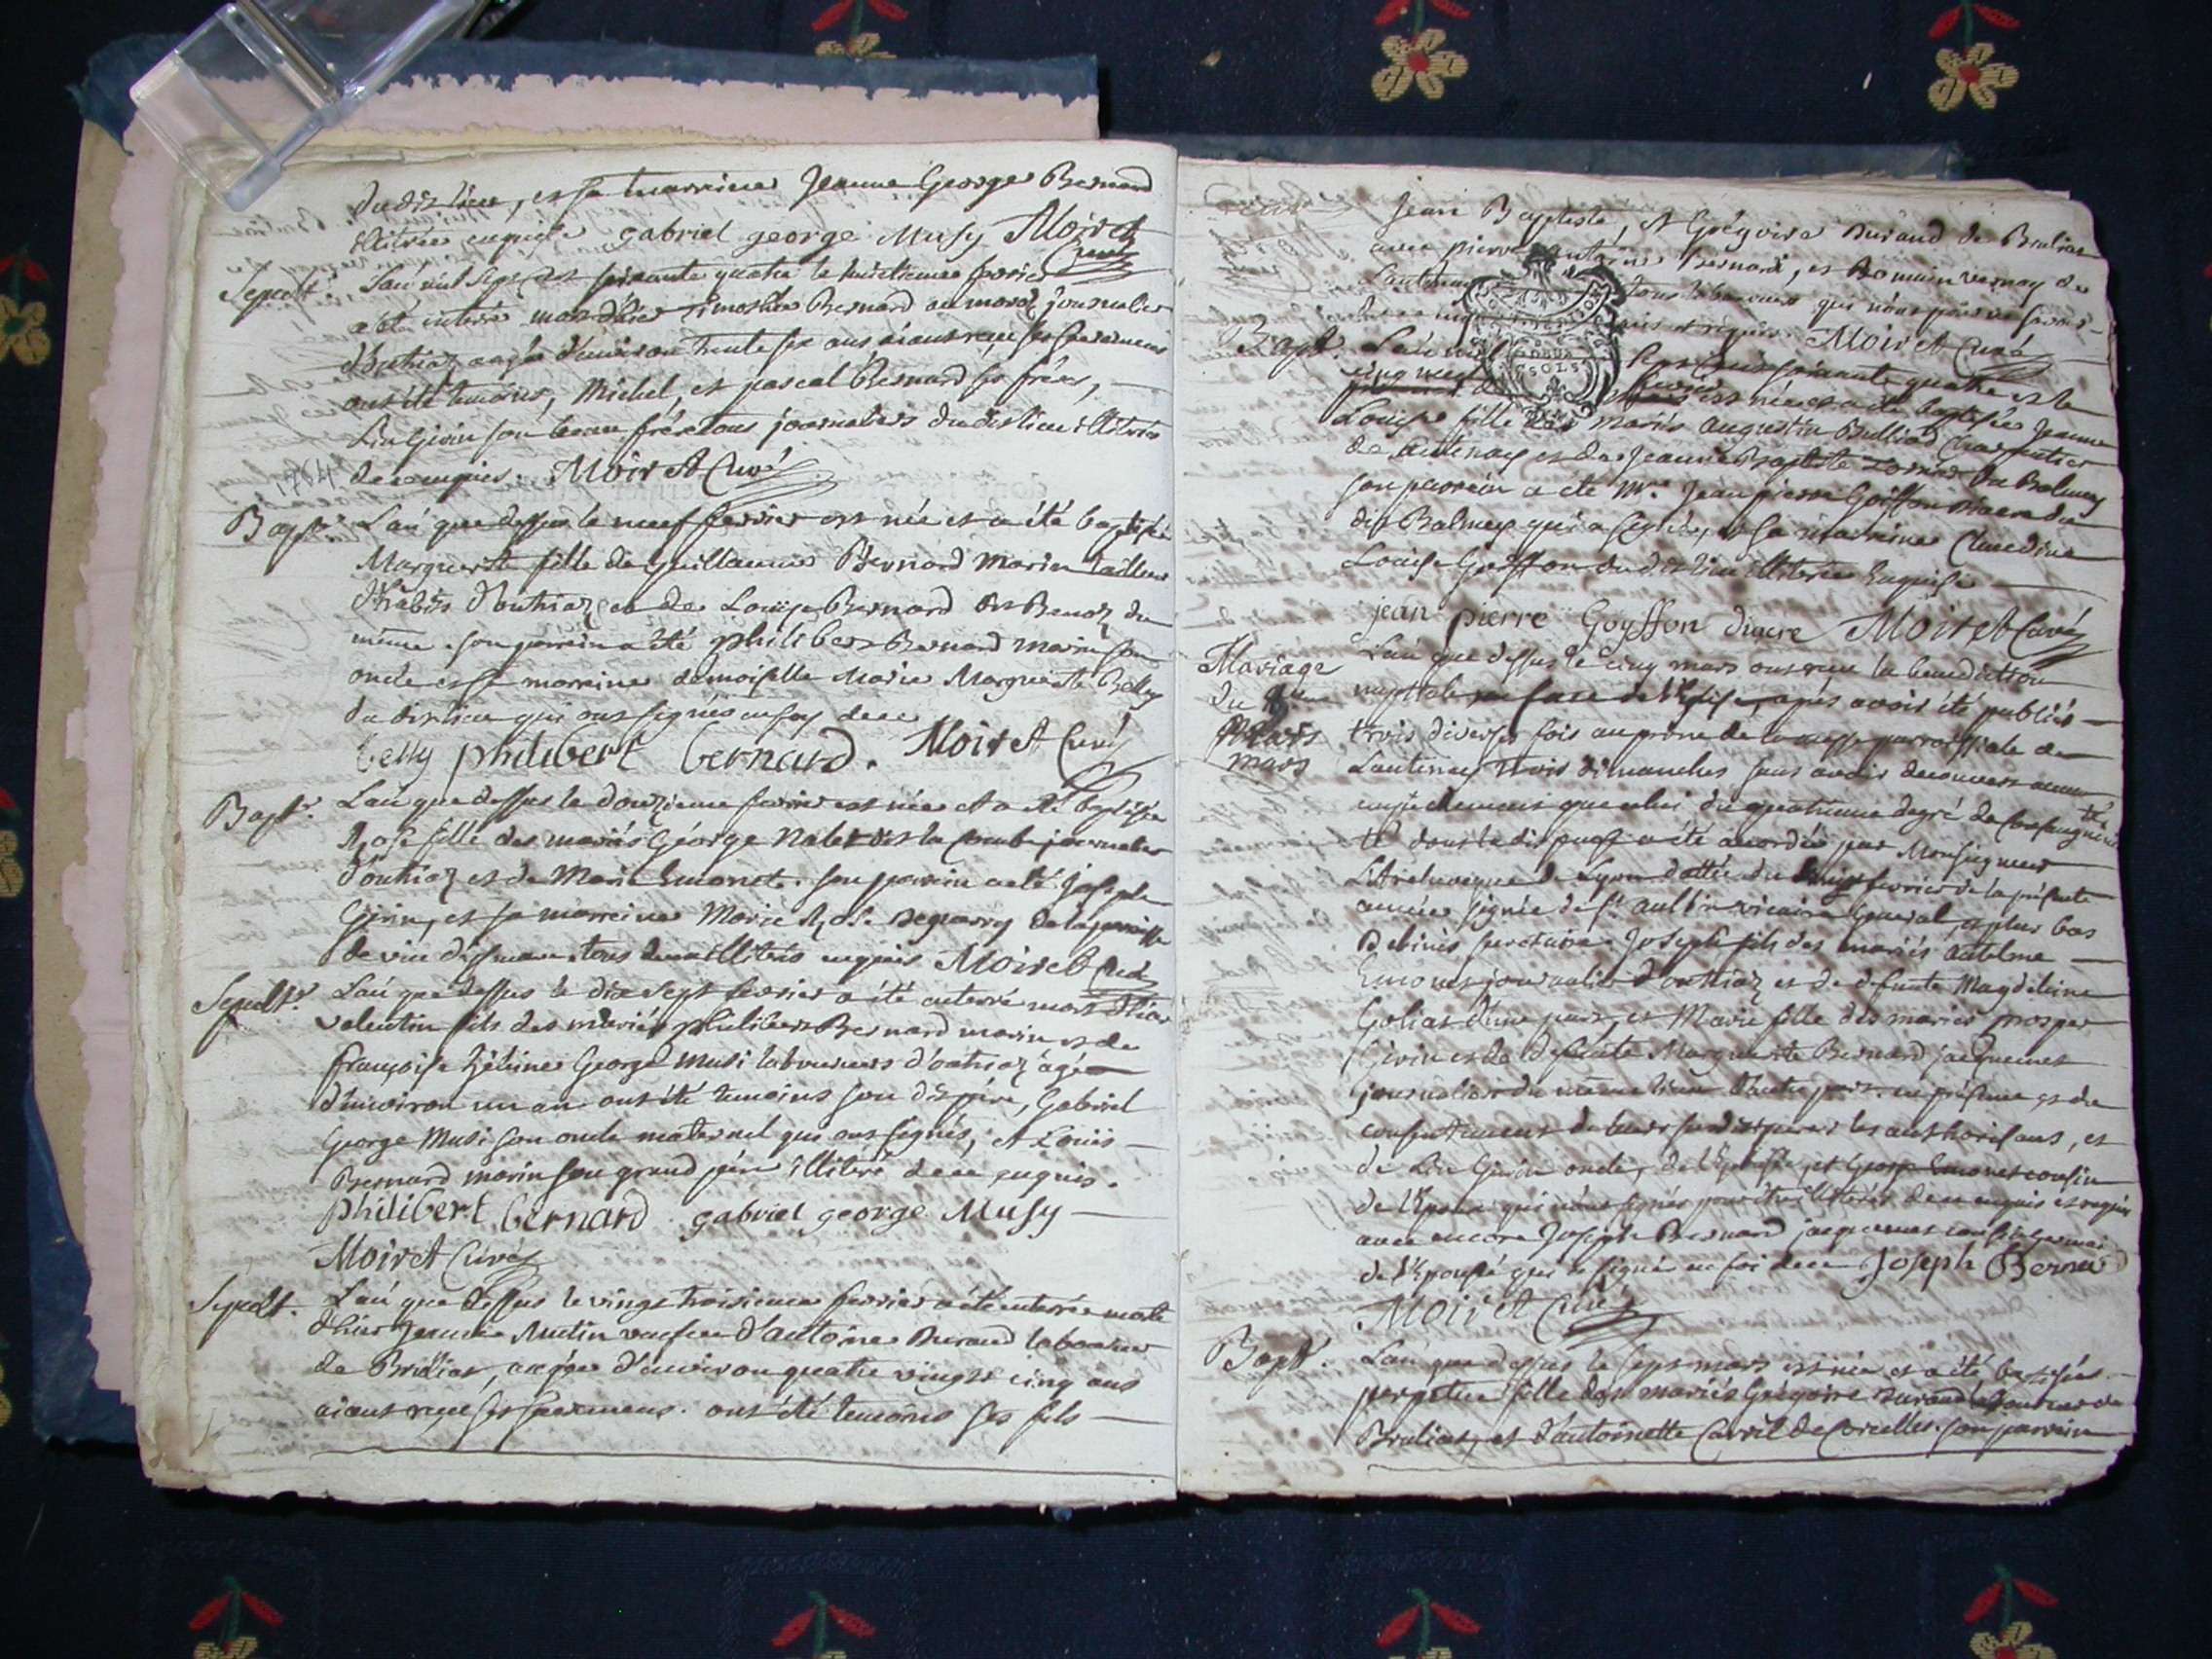 dudit lieu, et sa marreine Jeanne George Bernard
illitérée enquise gabriel george Musy Moiret
Curé
Sepult.
L'an mil sept cent soixante quatre le huitieme fevrier
a été enterré mort d'hier timothée Bernard au maroz journalier
d'outriaz aagée d'environ trente six ans aiant reçu ses sacremens
ont été temoins, Michel, et pascal Bernard ses fréres,
Lin Girin son beau frére tous journaliers dudit lieu illitérés
de ce enquis. Moiret Curé
1764
Bapt.
L'an que dessus le neuf fevrier est née et a été baptisée
Marguerite fille de Guillaume Bernard marin tailleur
d'habits d'outriaz et de Louise Bernard du
même. son parrein a été philibert Bernard marin son
oncle et sa marreine demoiselle Marie Marguerite Belly
du dit lieu qui ont signés en foy de ce
belly philibert bernard. Moiret Curé
Bapt.
L'an que dessus le douzieme fevrier est née et a été baptisée
Rose fille des mariés George Nalet dit la Combe journalier
d'outriaz et de Marie Emonet. son parrein a été Joseph
Girin, et sa marreine Marie Rose de la parroisse
de vieu d'isenave tous deux illitérés enquis Moiret Curé
Sepult.
L'an que dessus le dix sept fevrier a été enterré mort d'hier
valentin fils des mariés philibert Bernard marin et de
françoise héleine George Musi laboureurs d'outriaz âgé
d'environ un an ont été temoins son dit pére, Gabriel
George Musi son oncle maternel qui ont signés, et Louis
Bernard marin son grand pére illiteré de ce enquis.
philibert bernard gabriel george Musy
Moiret Curé
Sepult.
L'an que dessus le vingt troisieme fevrier a été enterrée morte
d'hier Mutin veufve d'antoine Durand laboureur
de Brulias, aagée d'environ quatre vingt cinq ans
aiant reçu ses sacremens. ont été temoins ses fils
Jean Baptiste, et Grégoire Durand de Brulias
avec pierre antoine Bernard, et Romain vernay de
Lantenay tous laboureurs qui n'ont
requis. Moiret Curé
Bapt.
L'an mil sept cent soixante quatre et le
cinq mars est née et a été baptisée Jeanne
Louise fille des mariés augustin Bulliod Charpentier
de Lantenay et de Jeanne Baptiste du Balmey
son parrein a été Mre. Jean pierre Goiffon Diacre du
dit Balmey qui a signé, et sa marreine Claudine
Louise Goiffon du dit lieu illiterée enquise
jean pierre Goyffon diacre Moiret Curé
Mariage
du
mars
L'an que dessus le cinq mars ont reçu la benediction
nuptiale en face de l'Eglise, aprés avoir été publiés
trois diverses fois au prône de la messe parroissiale de
Lantenay trois dimanches sans avoir decouvert aucun
empêchement que celui du quatrieme degré de consanguinité
dont la dispense a été accordée par Monseigneur
L'Archeveque de Lyon dattée du fevrier de la présente
année signée de St. aubin vicaire general, et plus bas
secretaire Joseph fils des mariés antelme
Emonet journalier d'outriaz et de defunte Magdeleine
Golias d'une part, et Marie fille des mariés prosper
Girin et de defunte Marguerite Bernard jacquemet
journalier du même lieu d'autre part. en présence et du
consentement de leurs susdits peres les authorisans, et
de Lin Girin oncle, de l'Epouse, et George Emonet cousin
de l'Epoux qui n'ont signés pour être illitérés de ce enquis et requis
avec encore Joseph Bernard jacquemet cousin germain
de l'Epouse qui a signé en foi de ce Joseph Bernar
Moiret Curé
Bapt.
L'an que dessus le sept mars est née et a été baptisée
perpetue fille des mariés Grégoire Durand laboureur de
Brulias, et d'antoinette Carril de Corcelles. son parrein